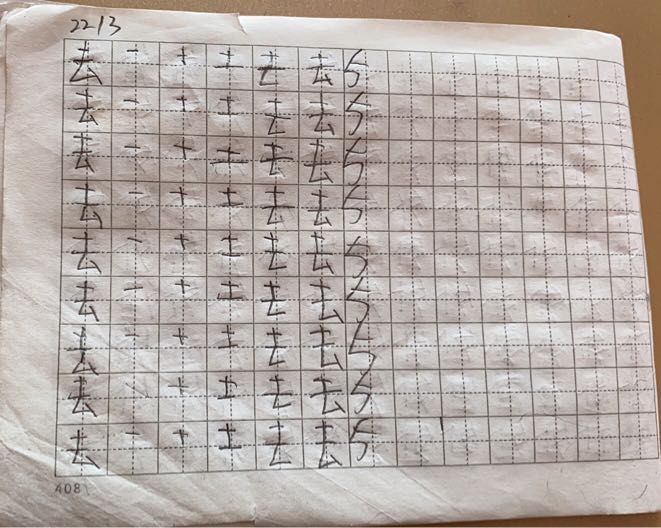 2213
去 一 十 土 去 去 5
去 一 十 土 去 去 5
去 一 十 土 去 去 5
去 一 十 土 去 去 5
去 一 十 土 去 去 5
去 一 十 土 去 去 5
去 一 十 土 去 去 5
去 一 十 土 去 去 5
去 一 十 土 去 去 5
408